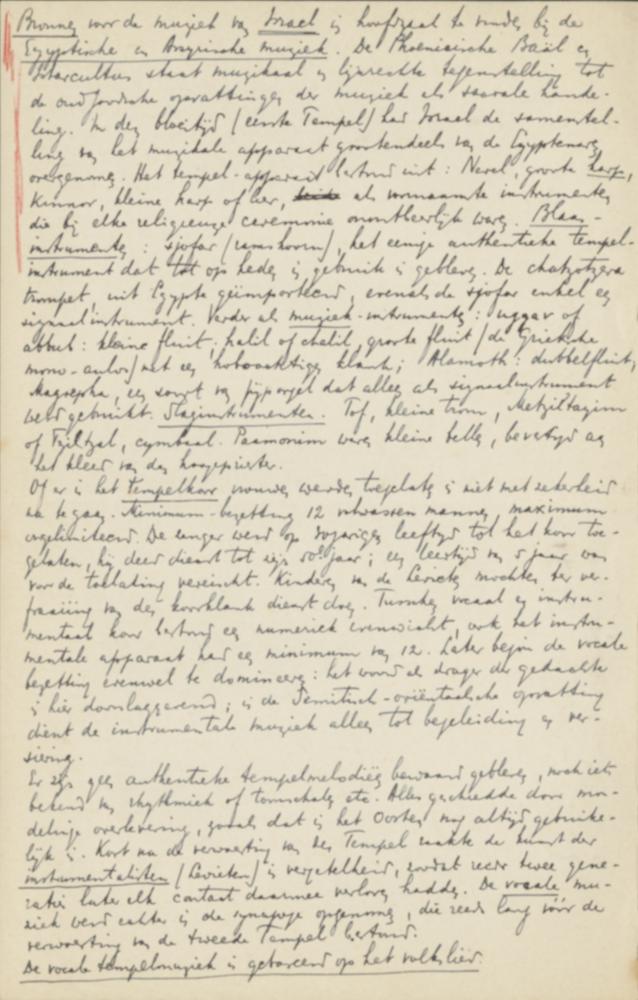 Bronnen voor de muziek van Israel is hoofdzaak te vinden bij de
Egyptische en Assyrische muziek. De Phoenicische Baäl en
Istarcultus staat muzikaal in lijnrechte tegenstelling tot
de oud Joodsche opvattingen der muziek als sacrale hande-
ling. In den bloeitijd (eerste Tempel) had Israel de samenstel-
ling van het muzikale apparaat grootendeels van de Egyptenaren
overgenomen. Het tempel-apparaat bestond uit: Nevel, groote harp,
Kinnor, kleine harp of lier, als voornaamste instrumenten
die bij elke religieuze ceremonie onontbeerlijk waren. Blaas-
instrumenten: sjofar (ramshoorn), het eenige authentieke tempel-
instrument dat tot op heden in gebruik is gebleven. De chatzotzera
trompet, uit Egypte geïmporteerd, evenals de sjofar enkel een
signaalinstrument. Verder als muziek-instrumenten: uggav of
abbub: kleine fluit; halil of chalil, groote fluit (de Grieksche
mono-aulos) met een hoboachtigen klank; Alamoth: dubbelfluit,
Magrepha, een soort van pijporgel dat alleen als signaalinstrument
werd gebruikt. Slaginstrumenten. Tof, kleine trom, Metziltayim
of Tziltzal, cymbaal. Paamonim waren kleine bellen, bevestigd aan
het kleed van den hoogepriester.
Of er in het tempelkoor vrouwen werden toegelaten is niet met zekerheid
na te gaan. Minimum-bezetting 12 volwassen mannen, maximum
ongelimiteerd. De zanger werd op 30jarigen leeftijd tot het koor toe-
gelaten, hij deed dienst tot zijn 50e jaar; een leertijd van 5 jaar was
voor de toelating vereischt. Kinderen van de Levieten mochten ter ver-
fraaiing van den koorklank dienst doen. Tusschen vocaal en instru-
mentaal koor bestond een numeriek evenwicht, ook het instru-
mentale apparaat had een minimum van 12. Later begon de vocale
bezetting evenwel te domineeren: het woord als drager der gedachte
is hier doorslaggevend; in de Semitisch-oriëntaalsche opvatting
dient de instrumentale muziek alleen tot begeleiding en ver-
siering.
Er zijn geen authentieke tempelmelodieën bewaard gebleven, noch iets
bekend van rhythmiek of toonschalen etc. Alles geschiedde door mon-
delinge overlevering, zooals dat in het Oosten nog altijd gebruike-
lijk is. Kort na de verwoesting van den Tempel raakte de kunst der
instrumentalisten (Levieten) in vergetelheid, zoodat reeds twee gene-
raties later elk contact daarmee verloren hadden. De vocale mu-
ziek werd echter in de synagoge opgenomen, die reeds lang vóór de
verwoesting van de tweede Tempel bestond.
De vocale tempelmuziek is gebaseerd op het volkslied.